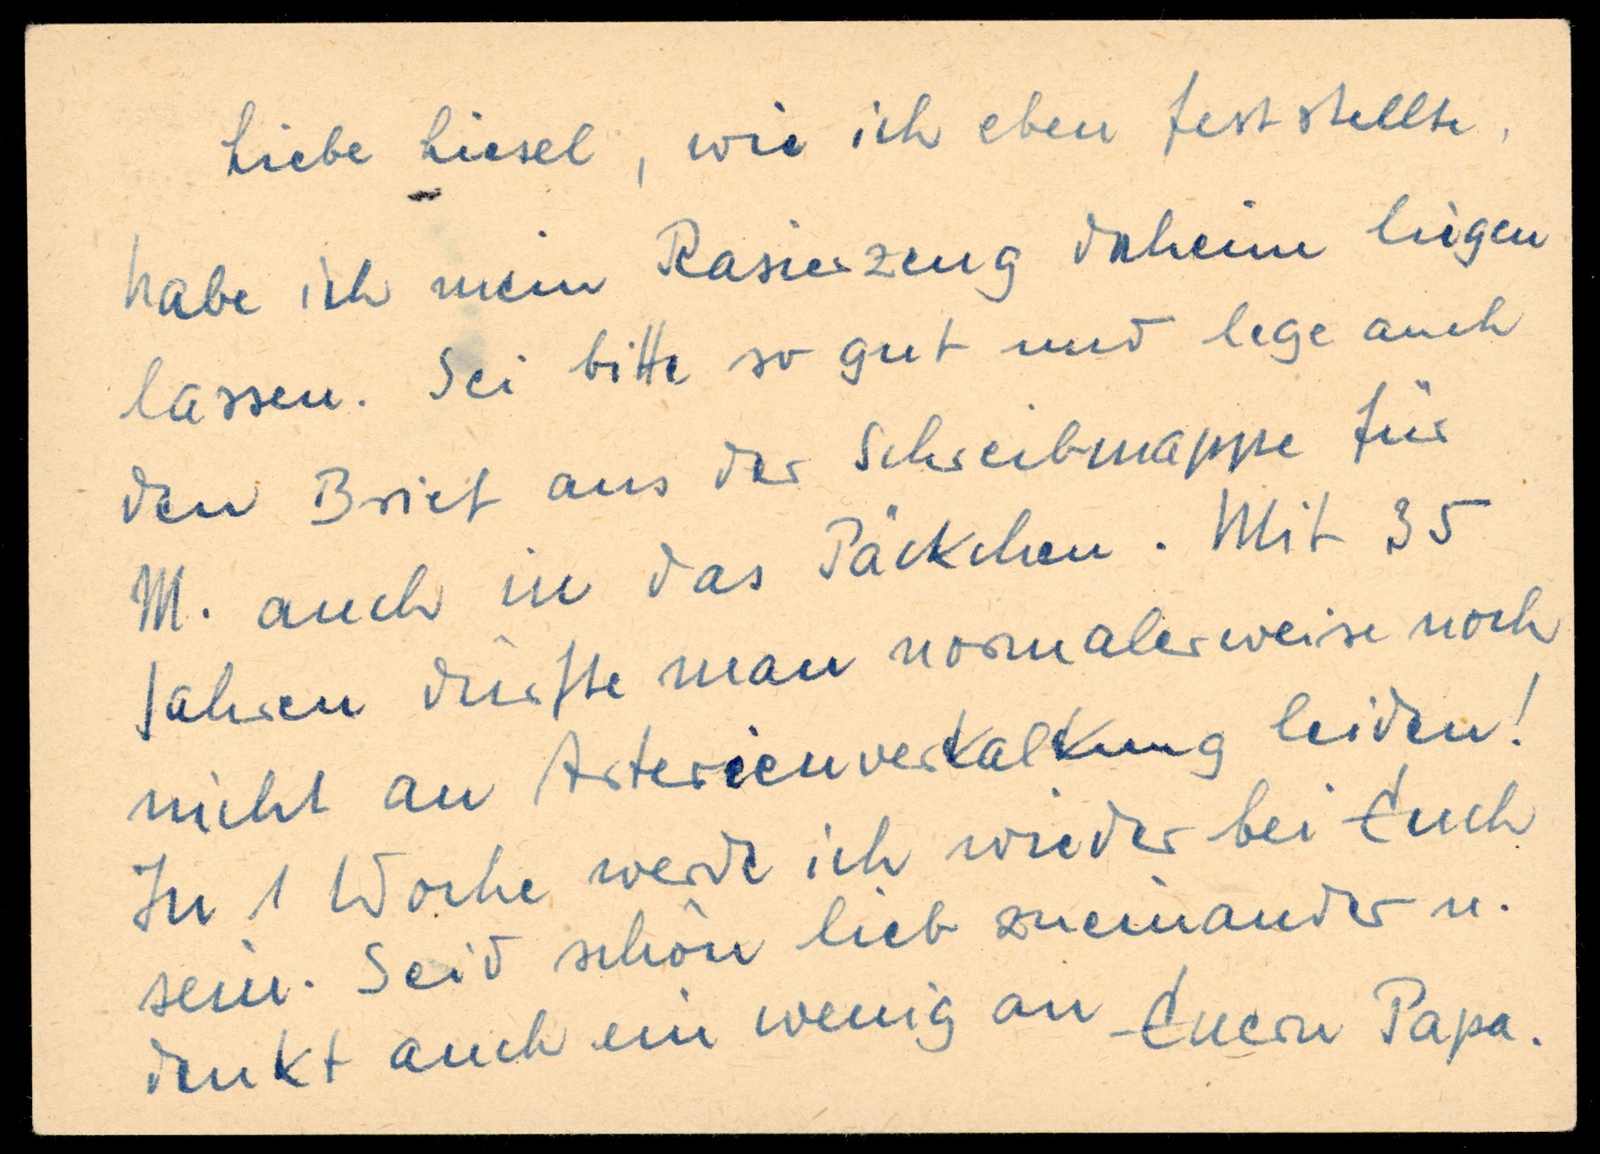 Liebe Liesel, wie ich eben feststellte,
habe ich mein Rasierzeug daheim liegen
lassen. Sei bitte so gut und lege auch
den Brief aus der Schreibmappe für
M. auch in das Päckchen. Mit 35
Jahren dürfte man normalerweise noch
nicht an Arterienverkalkung leiden!
In 1 Woche werde ich wieder bei Euch
sein. Seid schön lieb zueinander u.
denkt auch ein wenig an Euern Papa.